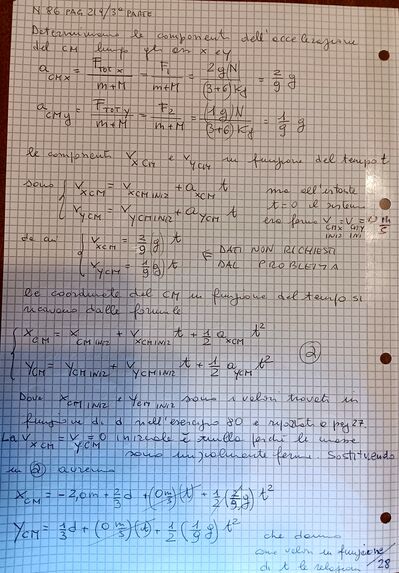 N 86 PAG 219/3ª PARTE
Determiniamo le componenti dell'accelerazione
del CM lungo gli assi x e y
a_CMx = F_TOT x / m+M = F_1 / m+M = 2g|N| / (3+6) Kg = 2/9 g
a_CMy = F_TOT y / m+M = F_2 / m+M = (1g)|N| / (3+6) Kg = 1/9 g
le componenti V_xCM e V_yCM in funzione del tempo t
sono { V_xCM = V_xCM INIZ + a_xCM t ma all'istante
V_yCM = V_yCM INIZ + a_yCM t t=0 il sistema
era fermo V_CMx INIZ = V_CMy INI = 0 m/s
da cui { V_xCM = 2/9 (g) t
V_yCM = 1/9 (g) t ⇐ DATI NON RICHIESTI
DAL PROBLEMA
le coordinate del CM in funzione del tempo si
ricavano dalle formule
{ x_CM = x_CM INIZ + V_xCM INIZ t + 1/2 a_xCM t²
y_CM = y_CM INIZ + V_yCM INIZ t + 1/2 a_yCM t² (2)
Dove x_CM INIZ e y_CM INIZ sono i valori trovati in
funzione di d nell'esercizio 80 e riportati a pag 27.
La V_xCM = V_yCM = 0 iniziale è nulla perché le masse
sono inizialmente ferme. Sostituendo
in (2) avremo
x_CM = -2,0m + 2/3 d + (0 m/s)(t) + 1/2 (2/9 g) t²
y_CM = 1/3 d + (0 m/s)(t) + 1/2 (1/9 g) t²
che danno
come valori in funzione
di t le relazioni /28